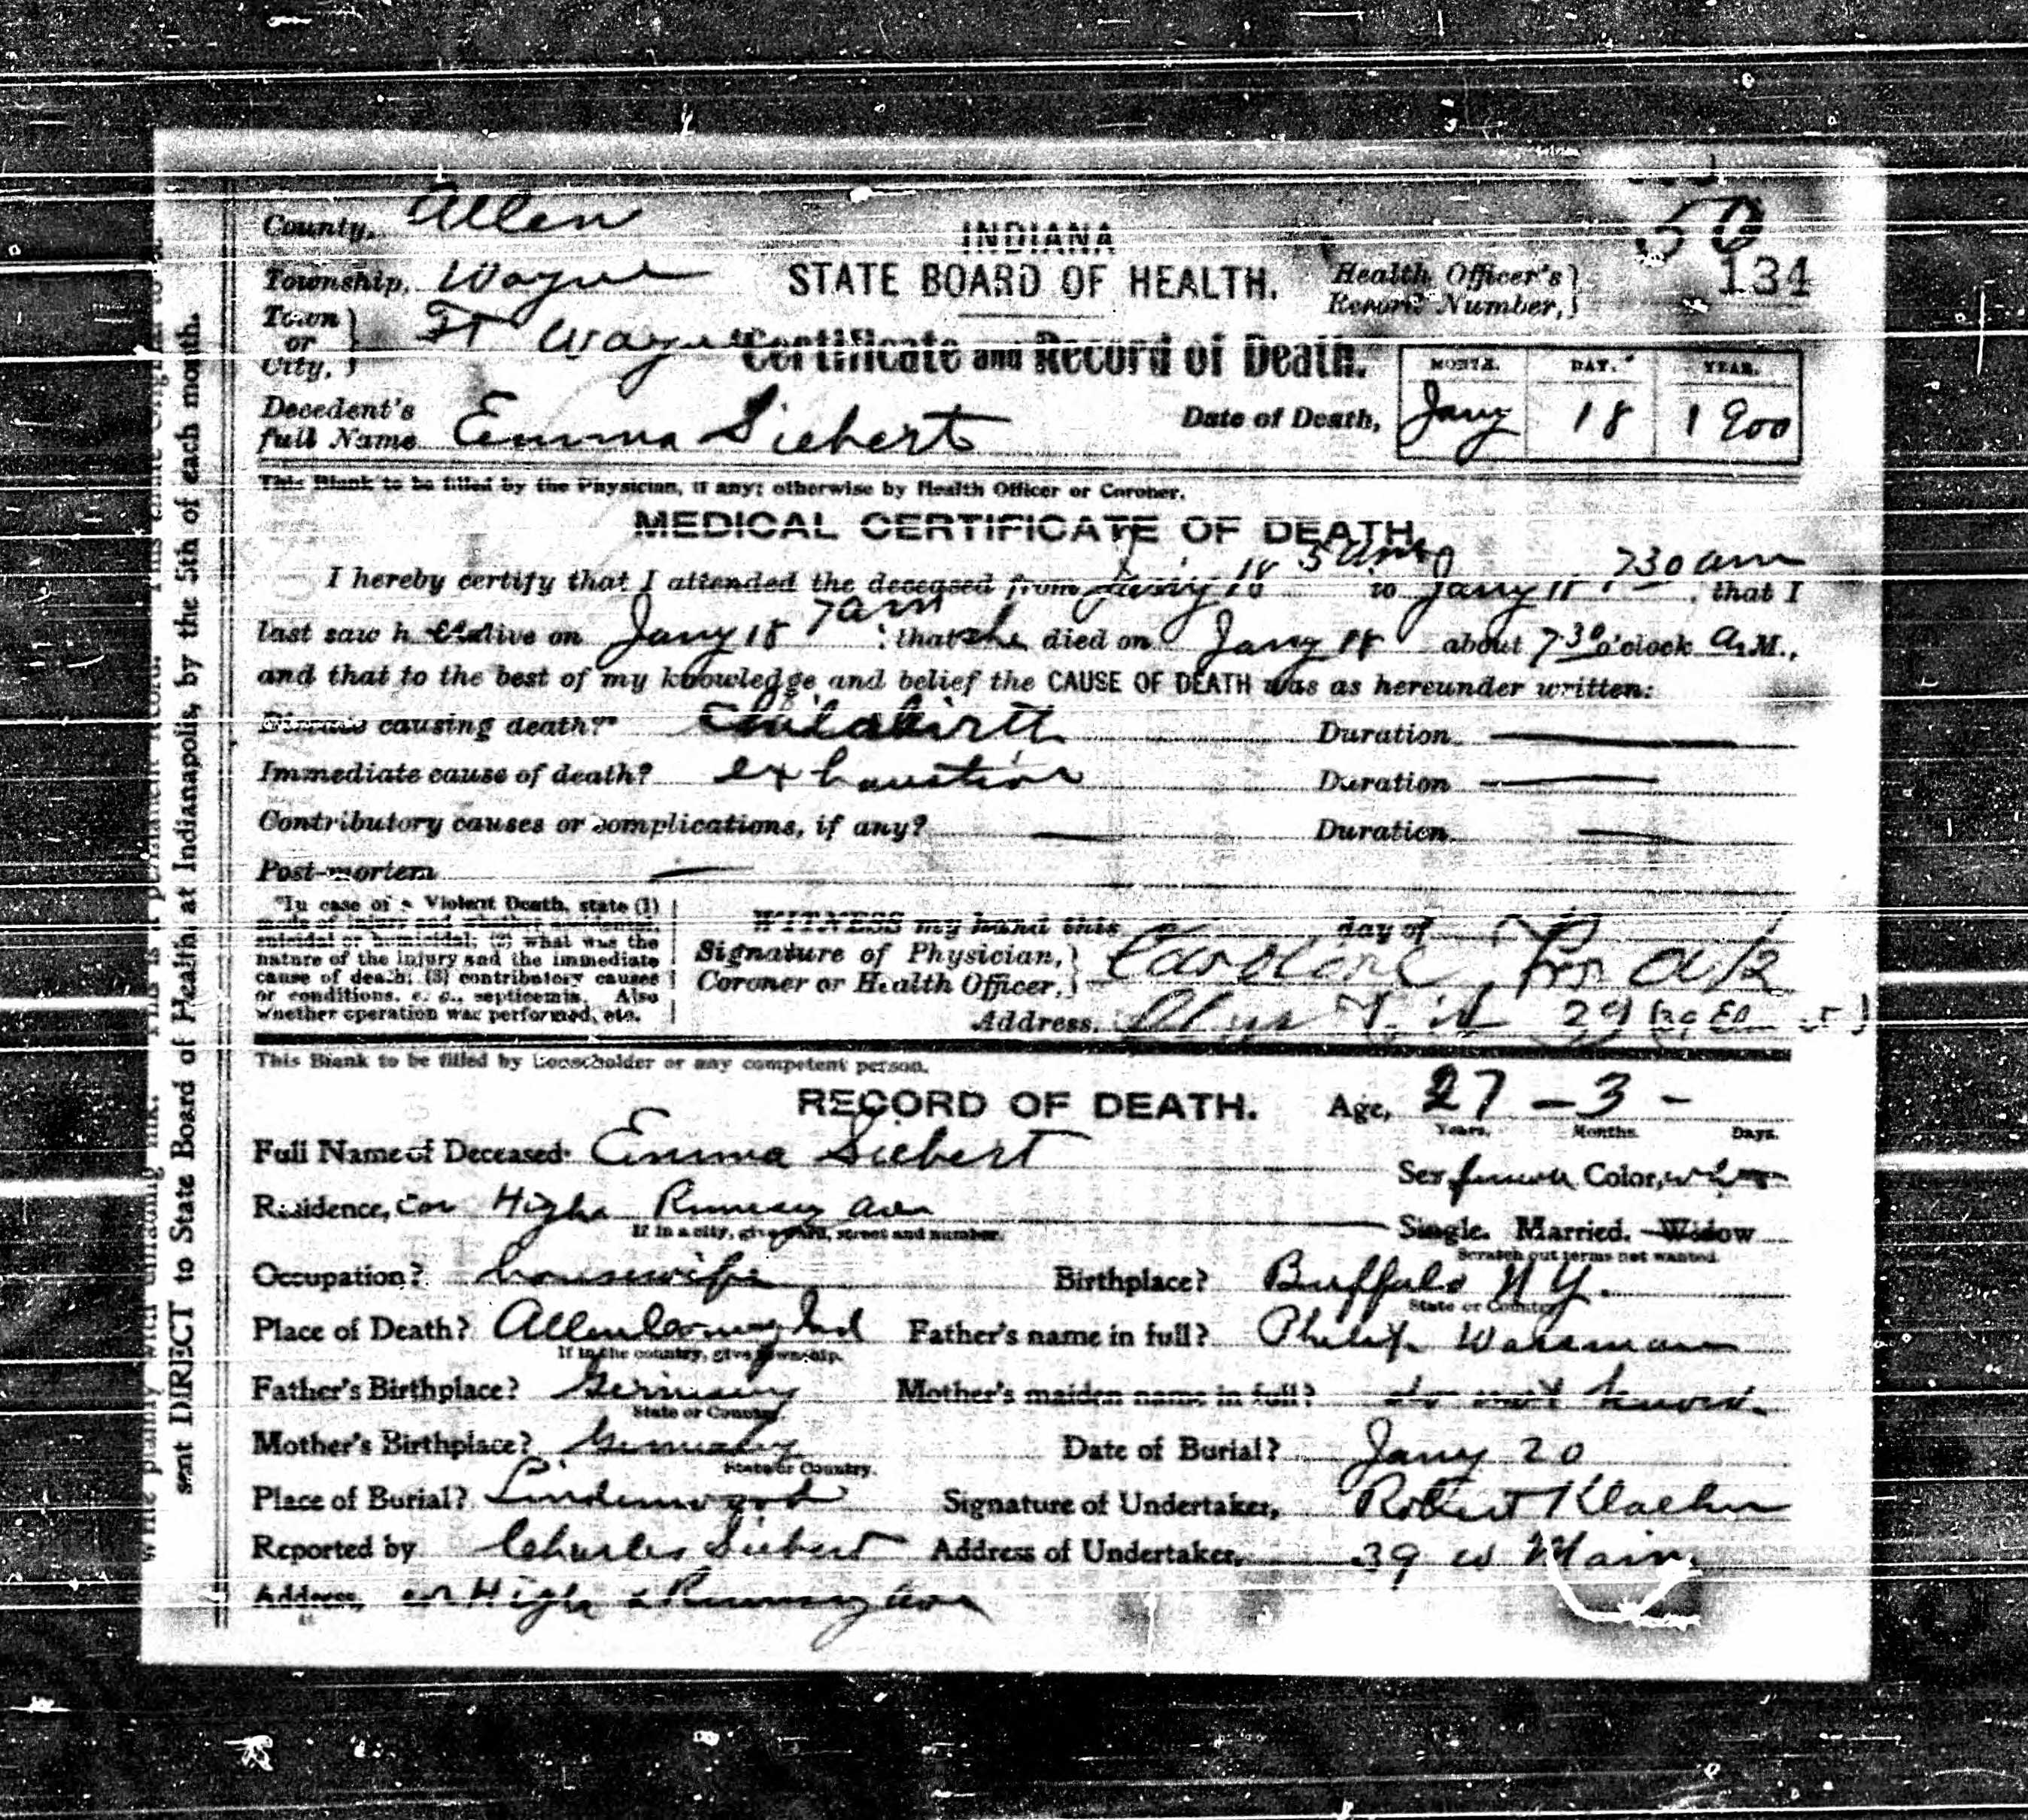 50
County, Allen
INDIANA
Township, Wayne
STATE BOARD OF HEALTH.
Health Officer's Record Number, 134
Town or City, Ft Wayne
Certificate and Record of Death.
MONTH. DAY. YEAR.
Decedent's full Name Emma Siebert
Date of Death, Jany 18 1900
This Blank to be filled by the Physician, if any; otherwise by Health Officer or Coroner.
MEDICAL CERTIFICATE OF DEATH
I hereby certify that I attended the deceased from Jany 18 5 am to Jany 18 7 30 am, that I
last saw h alive on Jany 18 7 am; that she died on Jany 18 about 7 30 o'clock a. M.,
and that to the best of my knowledge and belief the CAUSE OF DEATH was as hereunder written:
Disease causing death?* Childbirth Duration —
Immediate cause of death? exhaustion Duration —
Contributory causes or complications, if any? — Duration —
Post-mortem —
*In case of a Violent Death, state (1)
mode of injury and whether accidental,
suicidal or homicidal; (2) what was the
nature of the injury and the immediate
cause of death; (3) contributory causes
or conditions, e. g., septicemia. Also
whether operation was performed, etc.
WITNESS my hand this day of
Signature of Physician, Coroner or Health Officer, Caroline
Address, 29
This Blank to be filled by Householder or any competent person.
RECORD OF DEATH.
Age, 27 – 3 –
Years. Months. Days.
Full Name of Deceased Emma Siebert
Sex, female Color, white
Residence, Cor High Rumsey Ave
If in a city, give ward, street and number.
Single. Married. Widow
Scratch out terms not wanted.
Occupation? housewife
Birthplace? Buffalo N Y.
State or Country.
Place of Death? Allen County Ind
If in the country, give township.
Father's name in full? Philip
Father's Birthplace? Germany
State or Country.
Mother's maiden name in full? do not know.
Mother's Birthplace? Germany
State or Country.
Date of Burial? Jany 20
Place of Burial? Lindenwood
Signature of Undertaker, Robert Klaehn
Reported by Charles Siebert
Address of Undertaker, 39 W Main
Address, cor High & Rumsey Ave
sent DIRECT to State Board of Health at Indianapolis, by the 5th of each month.